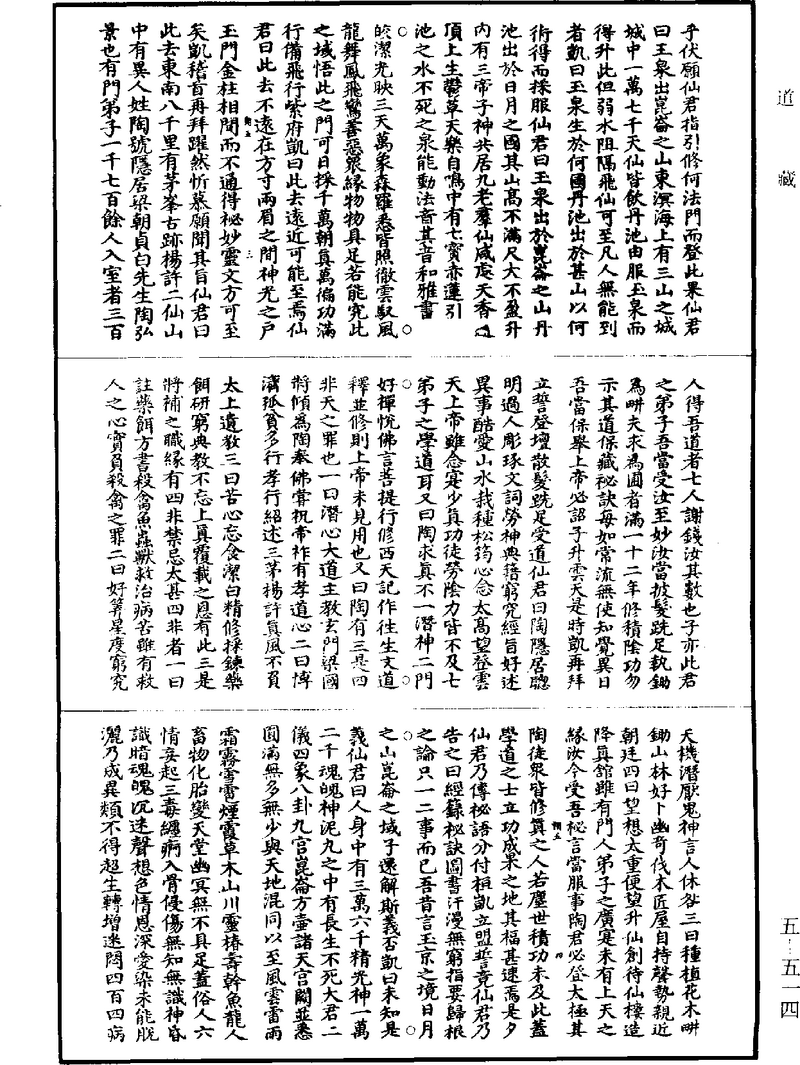 道藏
乎伏願仙君指引修何法門而登此果仙君
曰玉泉出崑崙之山東溟海上有三山之城
城中一萬七千天仙皆飲丹池由服玉泉而
得升此但弱水阻隔飛仙可至凡人無能到
者凱曰玉泉生於何國丹池出於甚山以何
術得而採服仙君曰玉泉出於崑崙之山丹
池出於日月之國其山高不滿尺大不盈升
內有三帝子神共居九老羣仙咸處天香
頂上生鬱草天樂自鳴中有七寶赤蓮引
池之水不死之泉能動法音其音和雅書
皎潔光映三天萬象森羅悉皆照徹雲馭風
龍舞鳳飛鸞善惡眾緣物物具足若能究此
之域悟此之門可日採千萬朝真萬徧功滿
行備飛行紫府凱曰此去遠近可能至焉仙
君曰此去不遠在方寸兩眉之間神光之戶
玉門金柱相閉而不通得祕妙靈文方可至
矣凱稽首再拜躍然忻慕願聞其旨仙君曰
此去東南八千里有茅峯古跡楊許二仙山
中有異人姓陶號隱居梁朝貞白先生陶弘
景也有門弟子一千七百餘人入室者三百
人得吾道者七人謝錢汝其數也子亦此君
之弟子吾當受汝至妙汝當披髮跣足執鋤
為畊夫求為圃者滿一十二年修積陰功勿
示其道保藏祕訣每如常流無使知覺異日
吾當保舉上帝必詔子升雲天是時凱再拜
立誓登壇散髮跣足受道仙君曰陶隱居聰
明過人彫琢文詞勞神典籍窮究經旨好述
異事酷愛山水栽種松筠心念太高望登雲
天上帝雖念寔少真功徒勞陰力皆不及七
弟子之學道耳又曰陶求真不一潛神二門
好禪悅佛言菩提行修西天記作往生文道
釋並修則上帝未見用也又曰陶有三是四
非天之罪也一曰潛心大道主教玄門梁國
將傾為陶奉佛嘗祝帝祚有孝道心二曰博
濟孤貧多行孝行紹述三茅楊許真風不負
太上遺教三曰苦心忘食潔白精修採鍊藥
餌研窮典教不忘上真覆載之恩有此三是
將補之職緣有四非禁忌太甚四非者一曰
註藥餌方書殺禽魚蟲獸救治病苦雖有救
人之心實負殺禽之罪二曰好筭星度窮究
天機潛厭鬼神言人休咎三曰種植花木畊
鋤山林好卜幽奇伐木匠屋自持聲勢親近
朝廷四曰望想太重便望升仙創待仙樓造
降真舘雖有門人弟子之廣寔未有上天之
緣汝今受吾祕言當服事陶君必登太極其
陶徒眾皆修真之人若塵世積功未及此蓋
學道之士立功成果之地其福甚速焉是夕
仙君乃傳祕語分付桓凱立盟誓竟仙君乃
告之曰經籙祕訣圖書汗漫無窮指要歸根
之論只一二事而已吾昔言玉京之境日月
之山崑崙之域子還解斯義否凱曰未知是
義仙君曰人身中有三萬六千精光神一萬
二千魂魄神泥九之中有長生不死大君二
儀四象八卦九宮崑崙方壺諸天宮闕並悉
圓滿無多無少與天地混同以至風雲雷雨
霜霧雪電煙霞草木山川靈椿壽幹魚龍人
畜物化胎變天堂幽冥無不具足蓋俗人六
情妄起三毒纏痾入骨優傷無知無識神昏
識暗魂魄沉迷聲想色情恩深愛染未能脫
灑乃成異類不得超生轉增迷悶四百四病
五—五一四